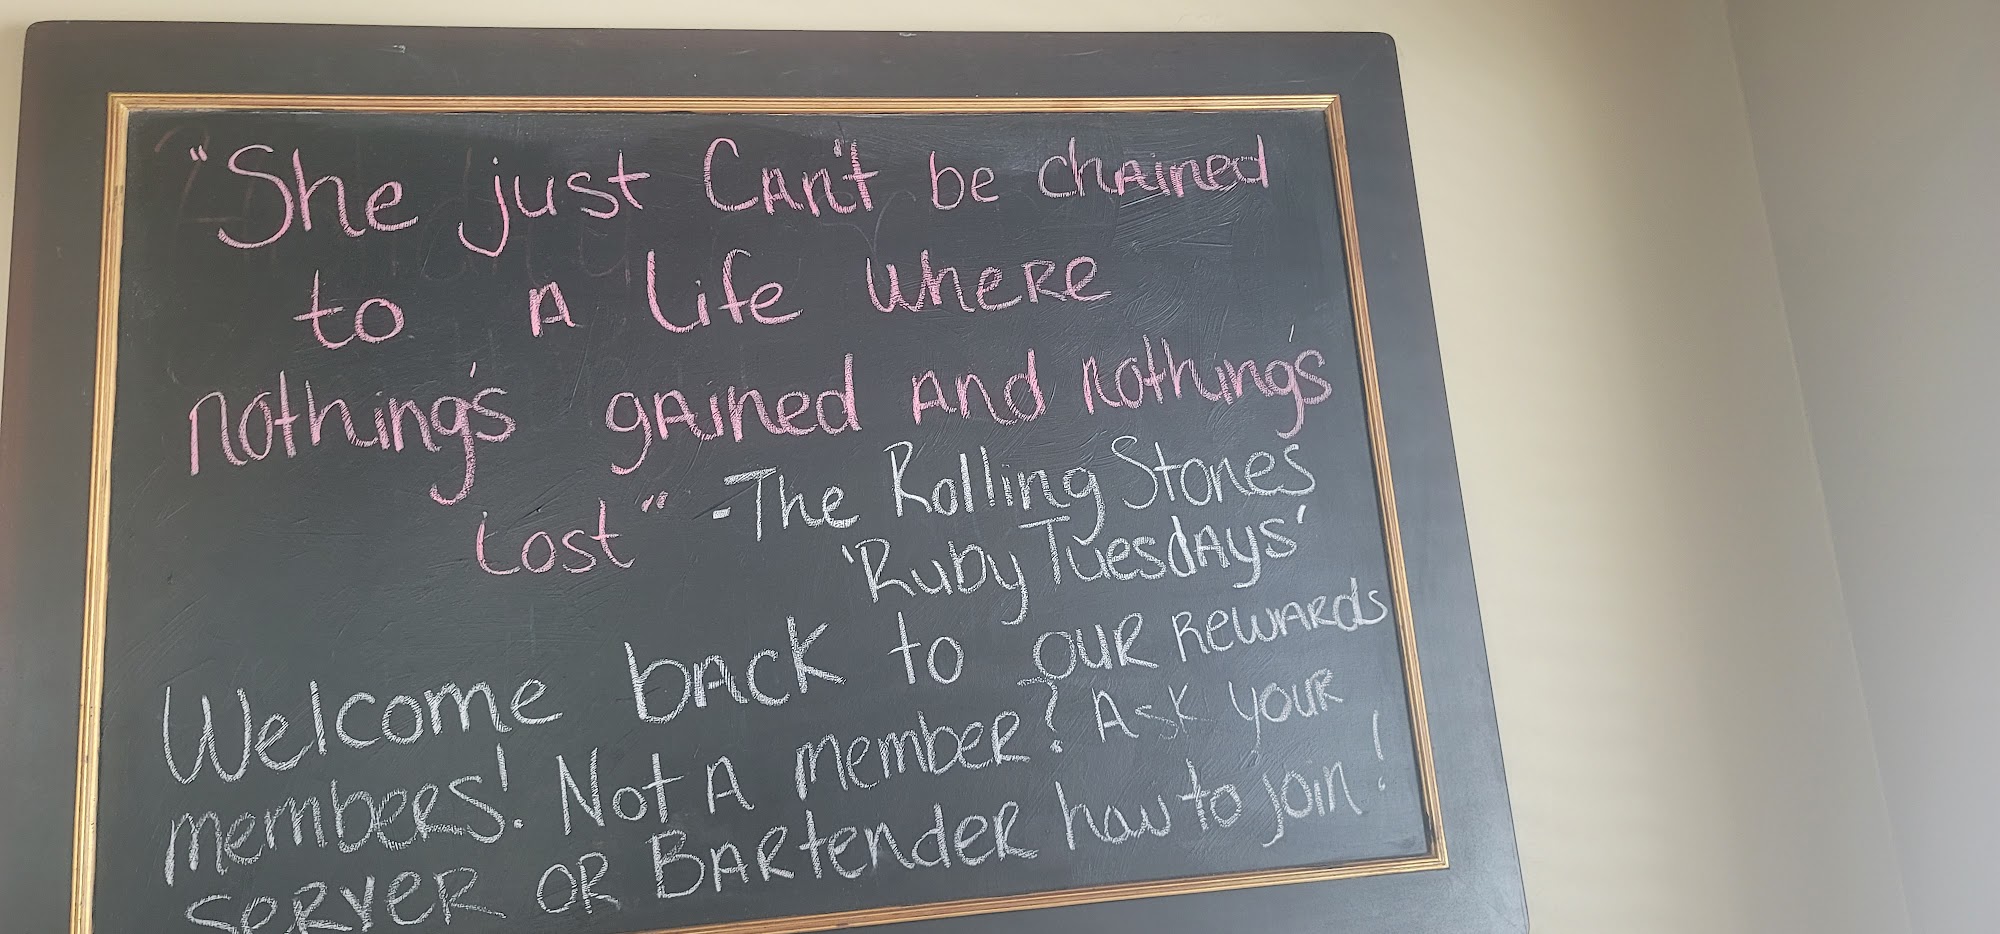 "She just Can't be chained
to a life where
nothing's gained and nothing's
lost" -The Rolling Stones
'Ruby Tuesdays'
Welcome back to our rewards
members! Not a member? Ask your
server or Bartender how to join!